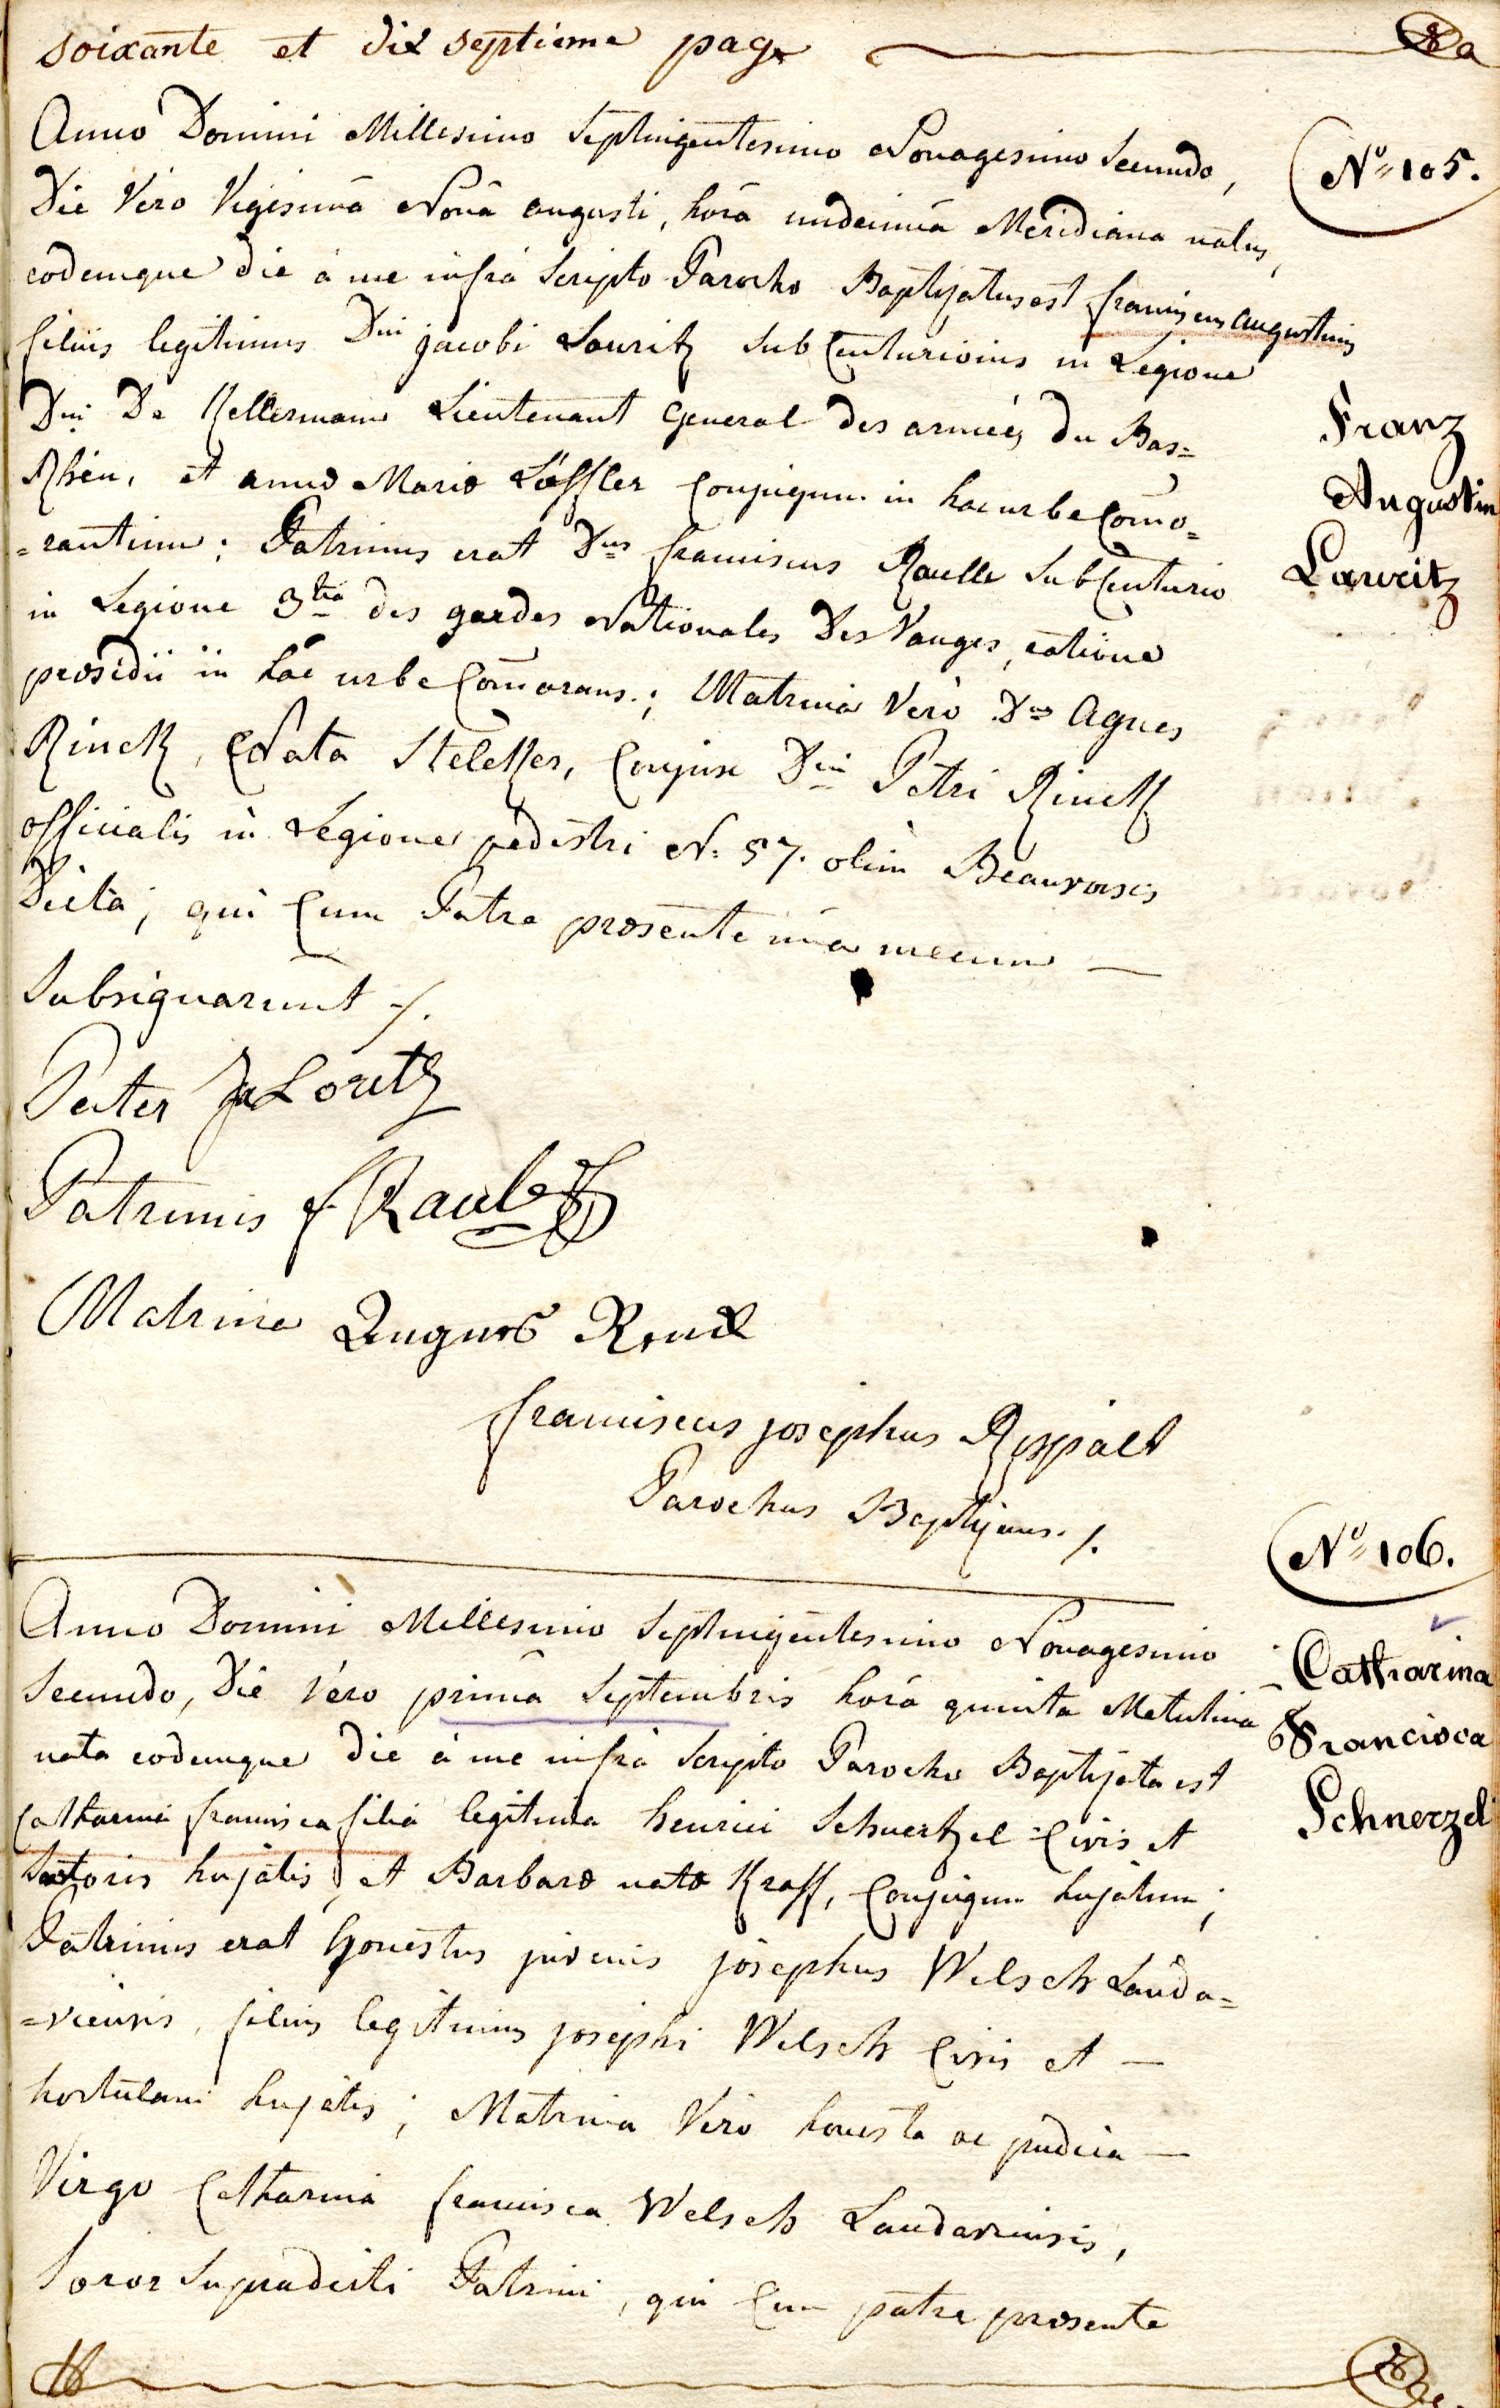 soixante et dix septieme page
Anno Domini Millesimo Septingentesimo Nonagesimo Secundo,
Nº 105.
Die Vero Vigesimâ Nonâ augusti, horâ undecimâ Meridiana natus,
eodemque die à me infrà Scripto Parocho Baptizatus est franciscus augustinus
filius legitimus Dni jacobi Lauritz Sub Centurionis in Legione
Dni De Kellermann Lieutenant General des armées du Bas=
Franz
Augustin
Lauritz
Rhin, et annæ Mariæ Löffler Conjugum in hac urbe Com̄o=
=rantium; Patrinus erat Dnus franciscus Raulle SubCenturio
in Legione 3tia des gardes Nationales Des Vauges, ratione
præsidii in hâc urbe Com̄orans.; Matrina Verò Dna Agnes
Rinck, Nata Stelcker, Conjux Dni Petri Rinck
officialis in Legione pedestri N: 57. olim Beauvoisis
Dictâ; qui Cum Patre præsente unà mecum —
Subsignarunt ./.
Pater Ja Loritz
Patrinus f Raule
Matrina Angnes Renck
franciscus josephus Rispalt
Parochus Baptizans ./.
Nº 106.
Anno Domini Millesimo Septingentesimo Nonagesimo
Secundo, Die Vero primâ Septembris horâ quinta Matutina
nata eodemque die à me infrà Scripto Parocho Baptizata est
Catharina francisca filia legitima henrici Schnertzel Civis et
Catharina
Francisca
Schnerzel
Sartoris hujatis, et Barbaræ natæ Kraff, Conjugum hujatum;
Patrinus erat honestus juvenis josephus Welsch Landa=
=viensis, filius legitimus josephi Welsch Civis et —
hortulani hujatis; Matrina Vero honesta ac pudica —
Virgo Catharina francisca Welsch Landaviensis,
Soror Supradicti Patrini, qui Cum patre præsente